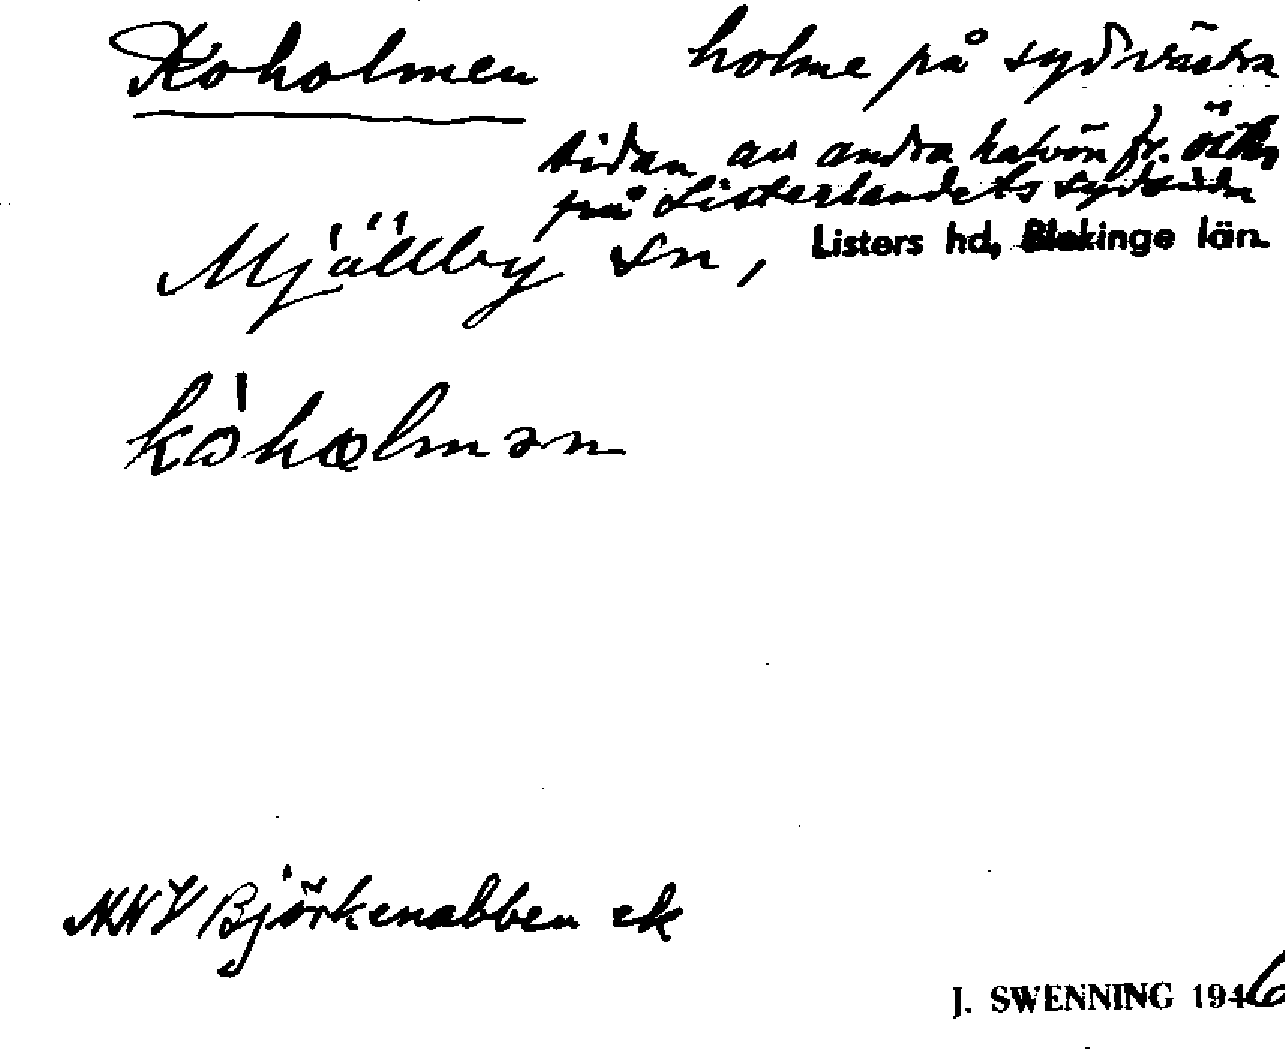 Koholmen
holme på sydvästra
sidan av andra halvön fr. öster
på Listerlandets sydsida
Mjällby sn, Listers hd, Blekinge län.
NNV Björkenabben ek
J. SWENNING 1946